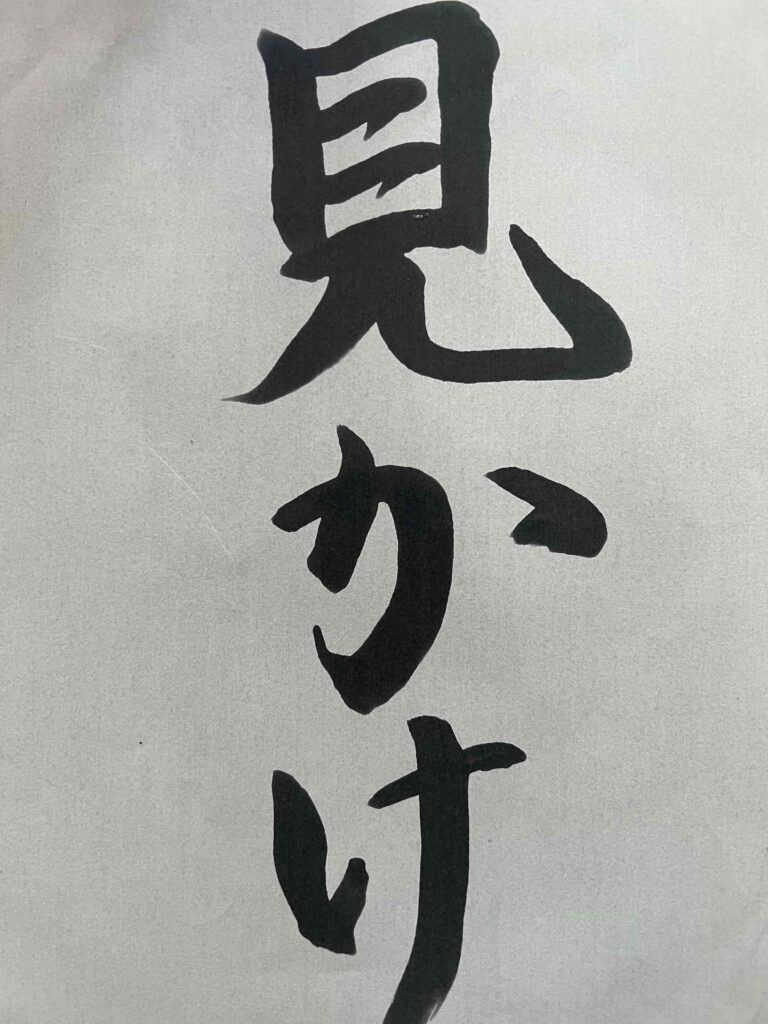 見かけ